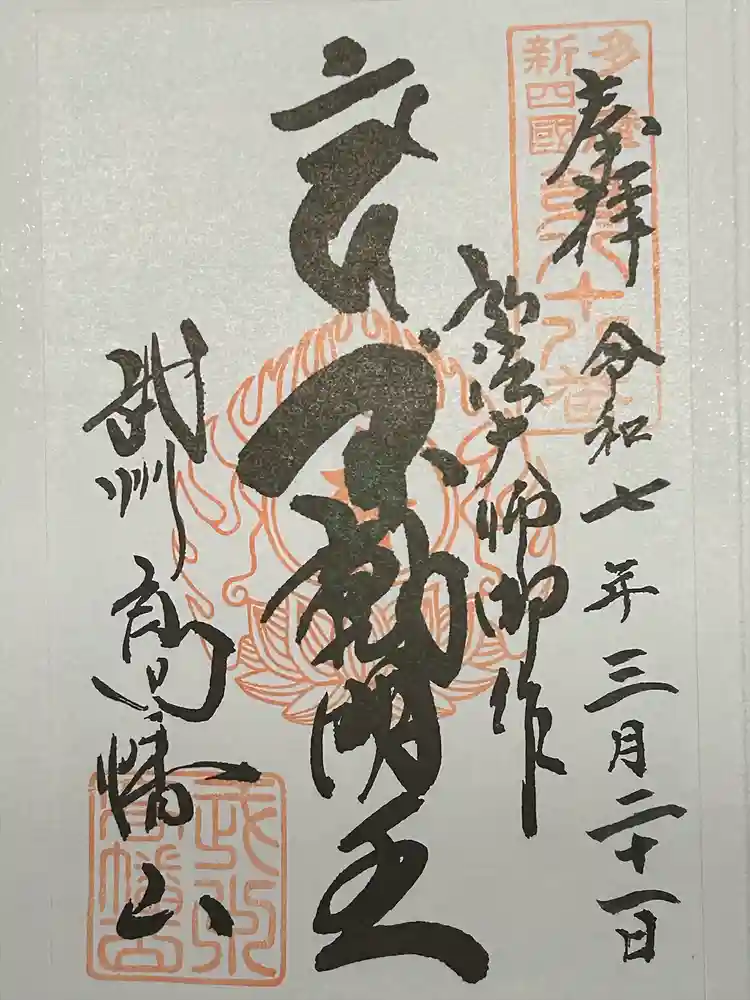 奉拝
令和七年三月二十一日
弘法大師御作
不動明王
武州
高幡山
多摩
新四國
武州
高幡山